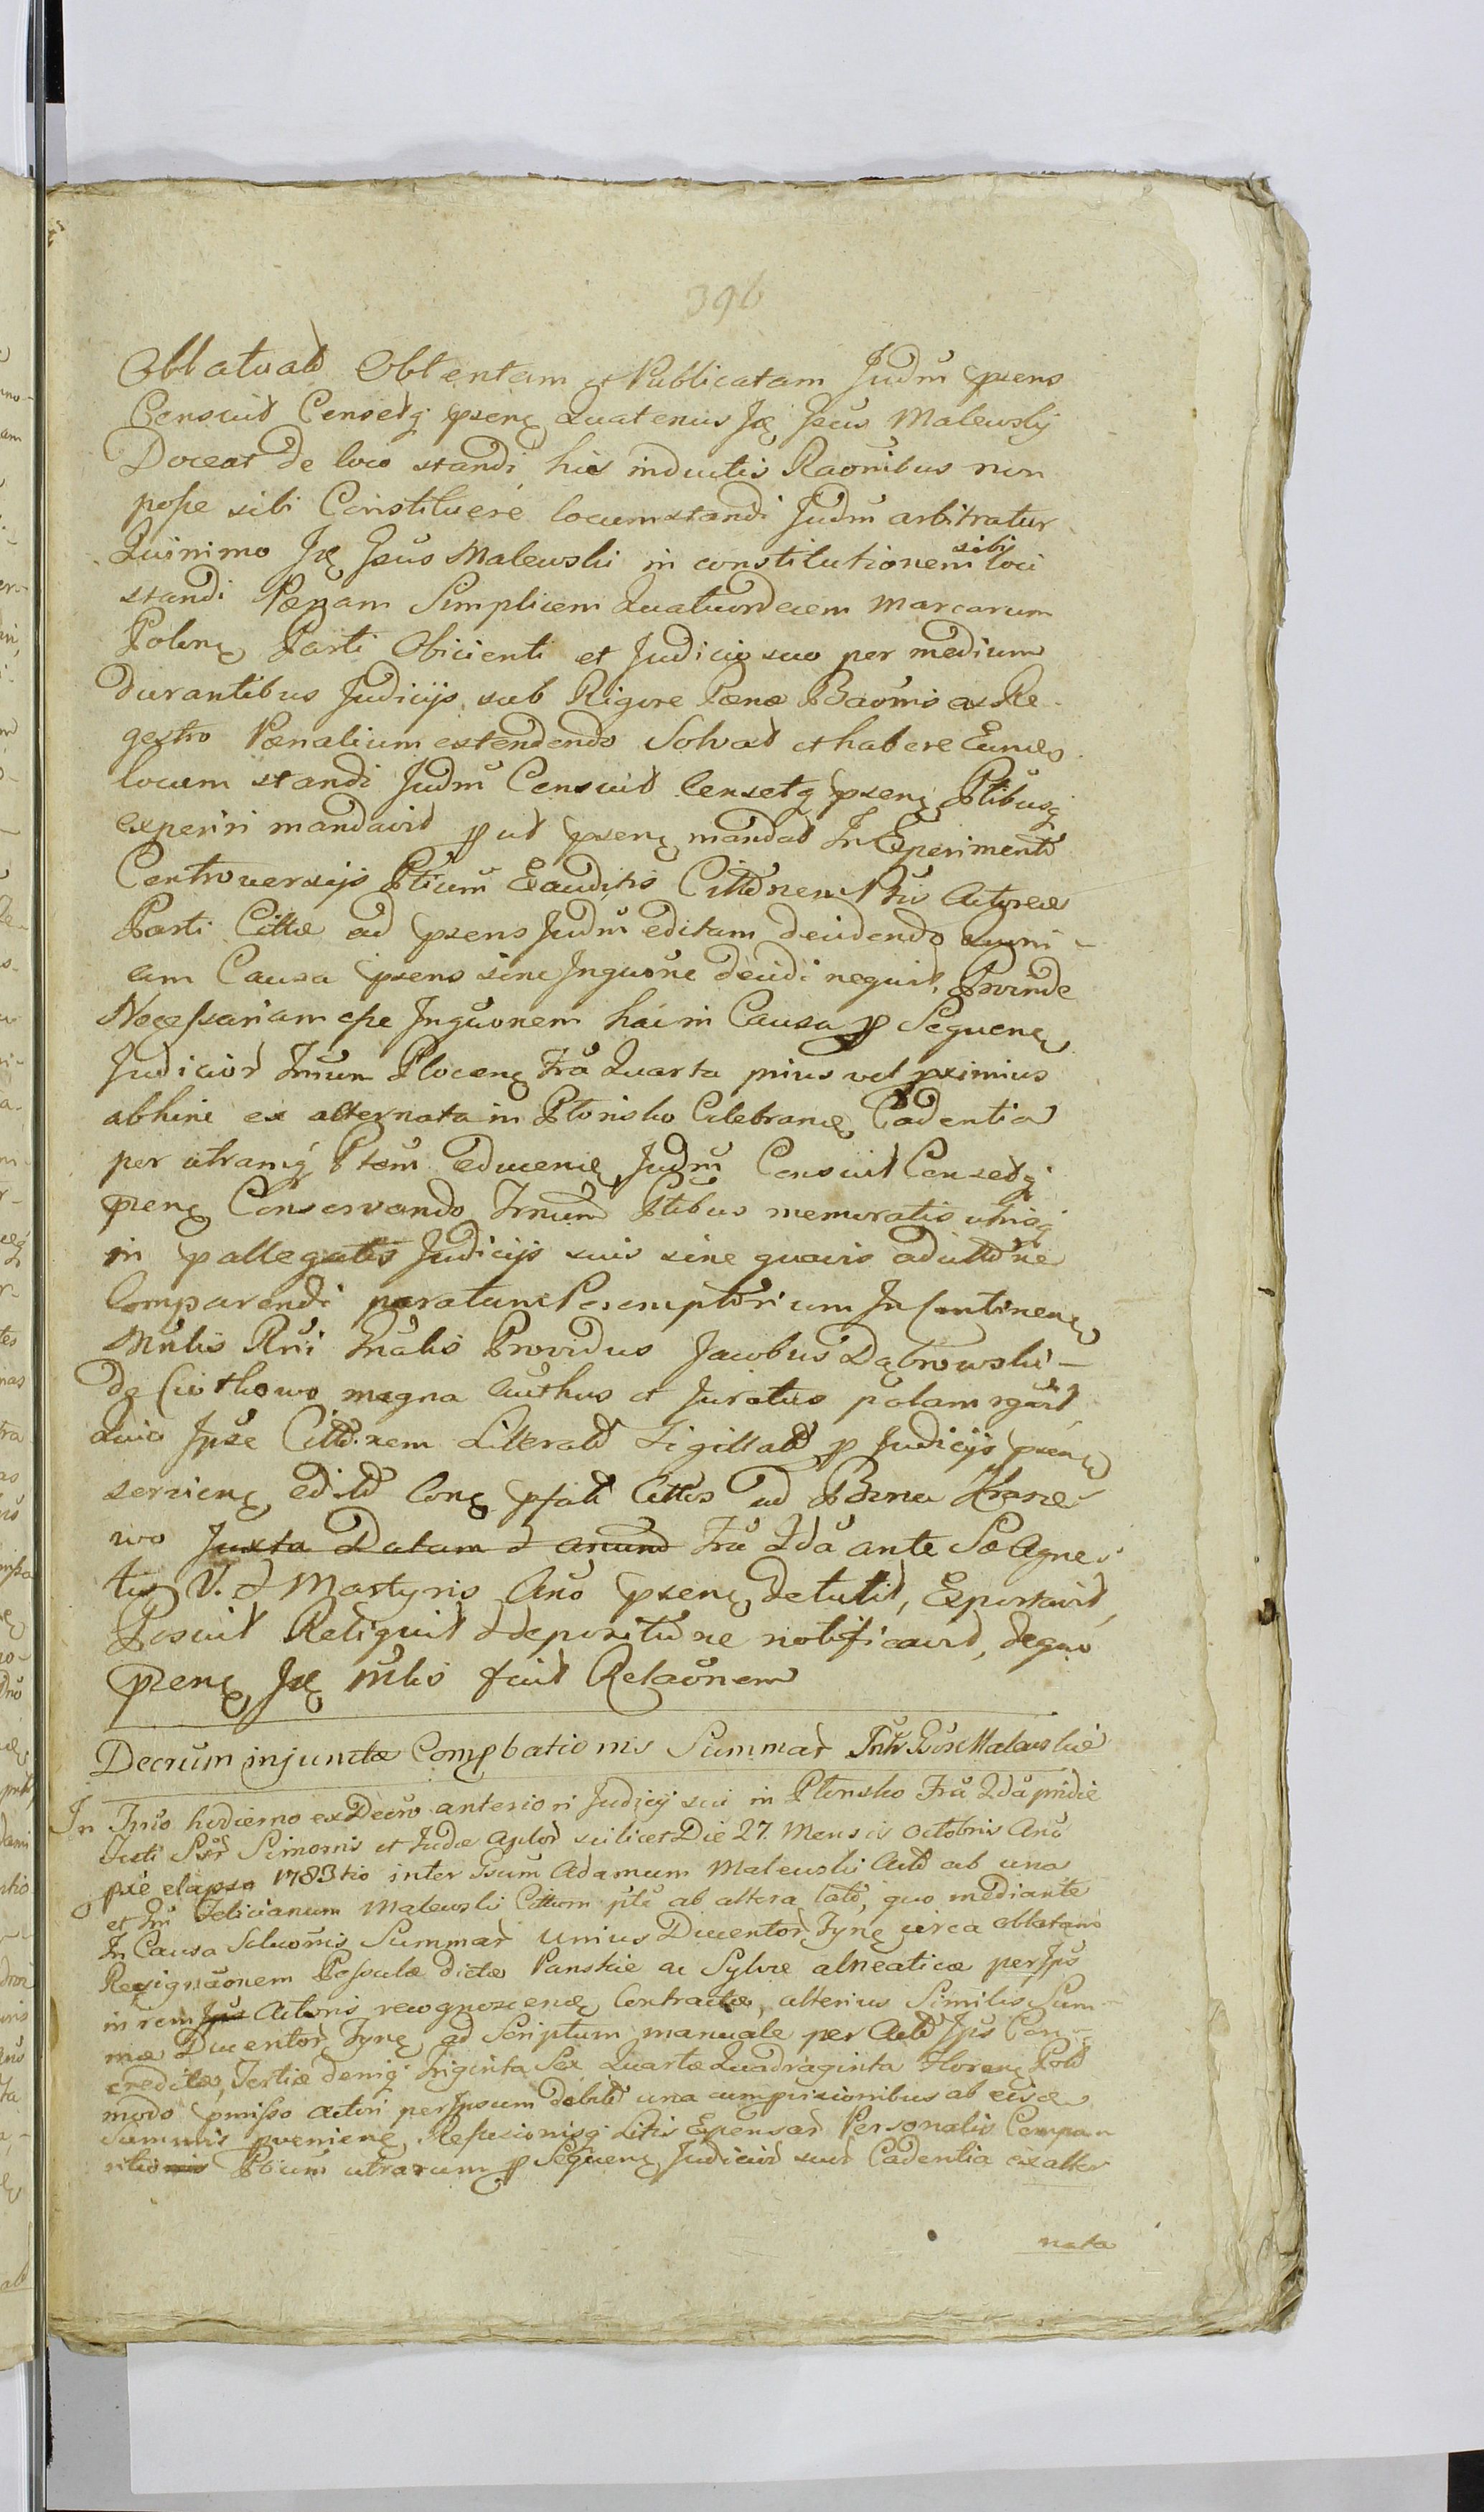 396
Ablatoad Obtentam et Publicatam Judm psens
Censuit Censetq psenę Quatenus Ję Gsus Malewsky
Doceat de loco standi his inductis Raonibus non
posse sibi Constituere locum standi Judm arbitratur
Quinimo Ję Gsus Malewski in constitutionem sibi loci
standi Pœnam Simplicem Quatuordecem Marcarum
Polonę Parti Obicienti et Judicio suo per medium
durantibus Judicijs sub Rigore Pœnæ Baonis ex Re
gestro Pœnalium extendendo Solvat et habere Eunde
locum standi Judm Censuit Censetq psenę Ptibusq
experiri mandavit put psenę mandat In Experimento
Controversijs Ptium Exauditis Cittõnem Ptis Actoreæ
Parti Cittæ ad psens Judm editam decidendo
am Causa psens sine Inquõne decidi nequit, Proinde
Necessariam esse Inquõnem hac in Causa p Sequenę
Judicior Trum Plocenę Fra Quarta prius vel pximius
abhinc ex alternata in Płonsko Celebranę Cadentia
per utramq Ptem educenę Judm Censuit Censetq
psenę Conservando Trnum Ptibus memoratis utrisq
in pallegatis Judicijs suis sine quavis adcittõne
Comparendi paratum Peremptorium In Continenę
Mnlis Rni Tralis Providus Jacobus Dąbrowski
de Ciothowo magna Authus et Juratus palam rguit
Quia Ipse Cittõnem Litterat Sigillat p Judicijs psenę
servienę edit Conę psati Cittis ad Bona Krasze
wo Juxta Datam & anum Fra 2da ante S Agne
tis V. & Martyris Ano psenę detulit, Exportavit,
Posuit Reliquit & depositione notificavit, de quo
psenę Ję mlis fuit Relaõnem
Decrum injunctæ Compbationis Summar Intr Gsos Malewskie
In Trno hodierno ex Decro anteriori Judicij sui in Płonsko Fra 2da pridie
Festi Sstor Simonis et Judæ Aplor scilicet Die 27. Mensis Octobris Ano
pxe elapso 1783tio inter Gsum Adamum Malewski Act ab una
et Felicianum Malewski Cittum pte ab altera lat, quo mediante
In Causa Solutionis Summar Unius Ducentor Tynę circa oblatam
Resignaõnem Possulæ dictæ Panskie ac Sylvæ alneaticæ per Ips
in rem Ips Actoris recognoscenę Contractæ, alterius Similis Sum
mæ Ducentor Tynę ad Scriptum manuale per Act Ips Con
creditæ, Tertiæ deniq Triginta Sex Quartæ Quadraginta Florenę Pol
modo pmisso actori per Ipsum debit una cum pvisionibus ab eisdem
Summis pvenienę, Refusionisq Litis Expensar Personalis Compa
ritionis Ptium utrarum p Sequenę Judicior suor Cadentia ex alter
nata